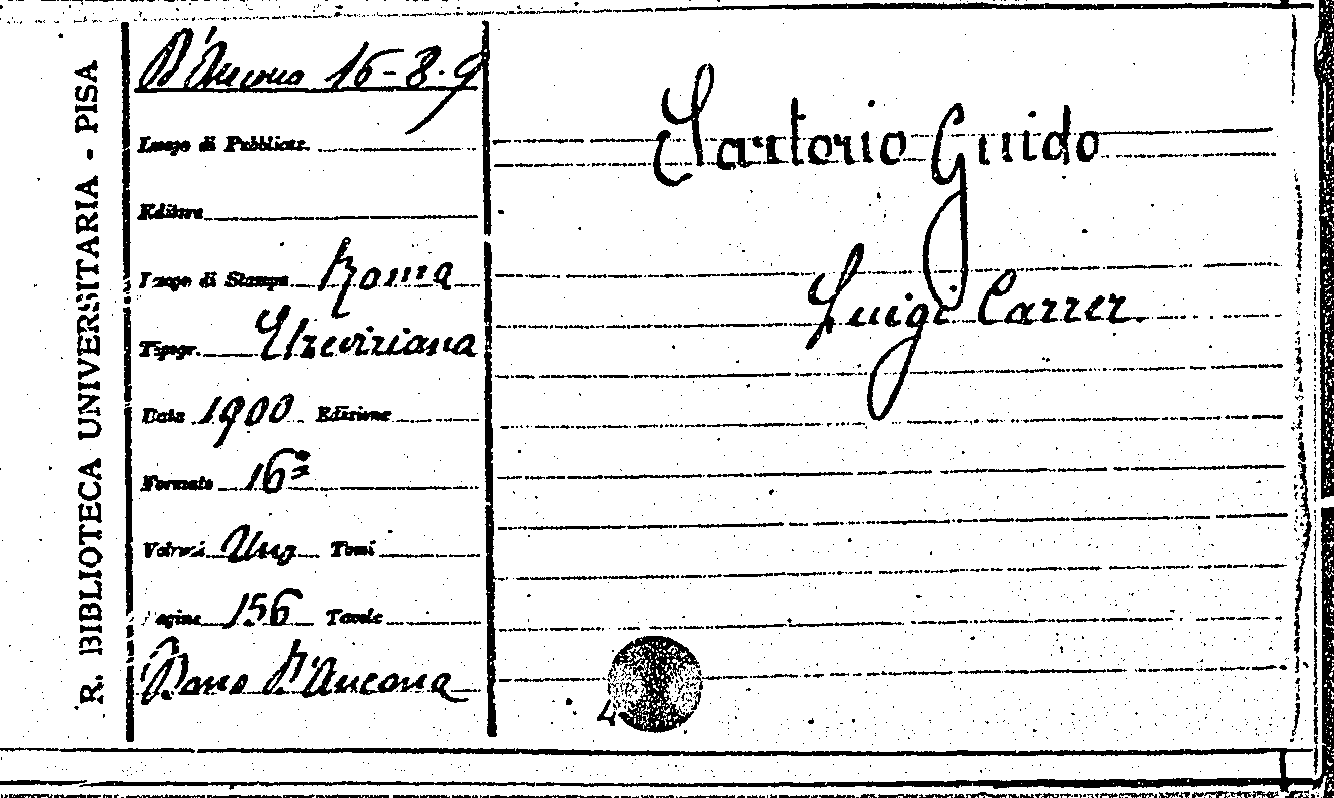 R. BIBLIOTECA UNIVERSITARIA - PISA
D'Ancona 16-8.9
Luogo di Pubblicaz.
Editore
Luogo di Stampa Roma
Tipogr. Elzeviriana
Data 1900 Edizione
Formato 16º
Volumi Uno Tomi
Pagine 156 Tavole
Dono D'Ancona
Sartorio Guido
Luigi Carrer.